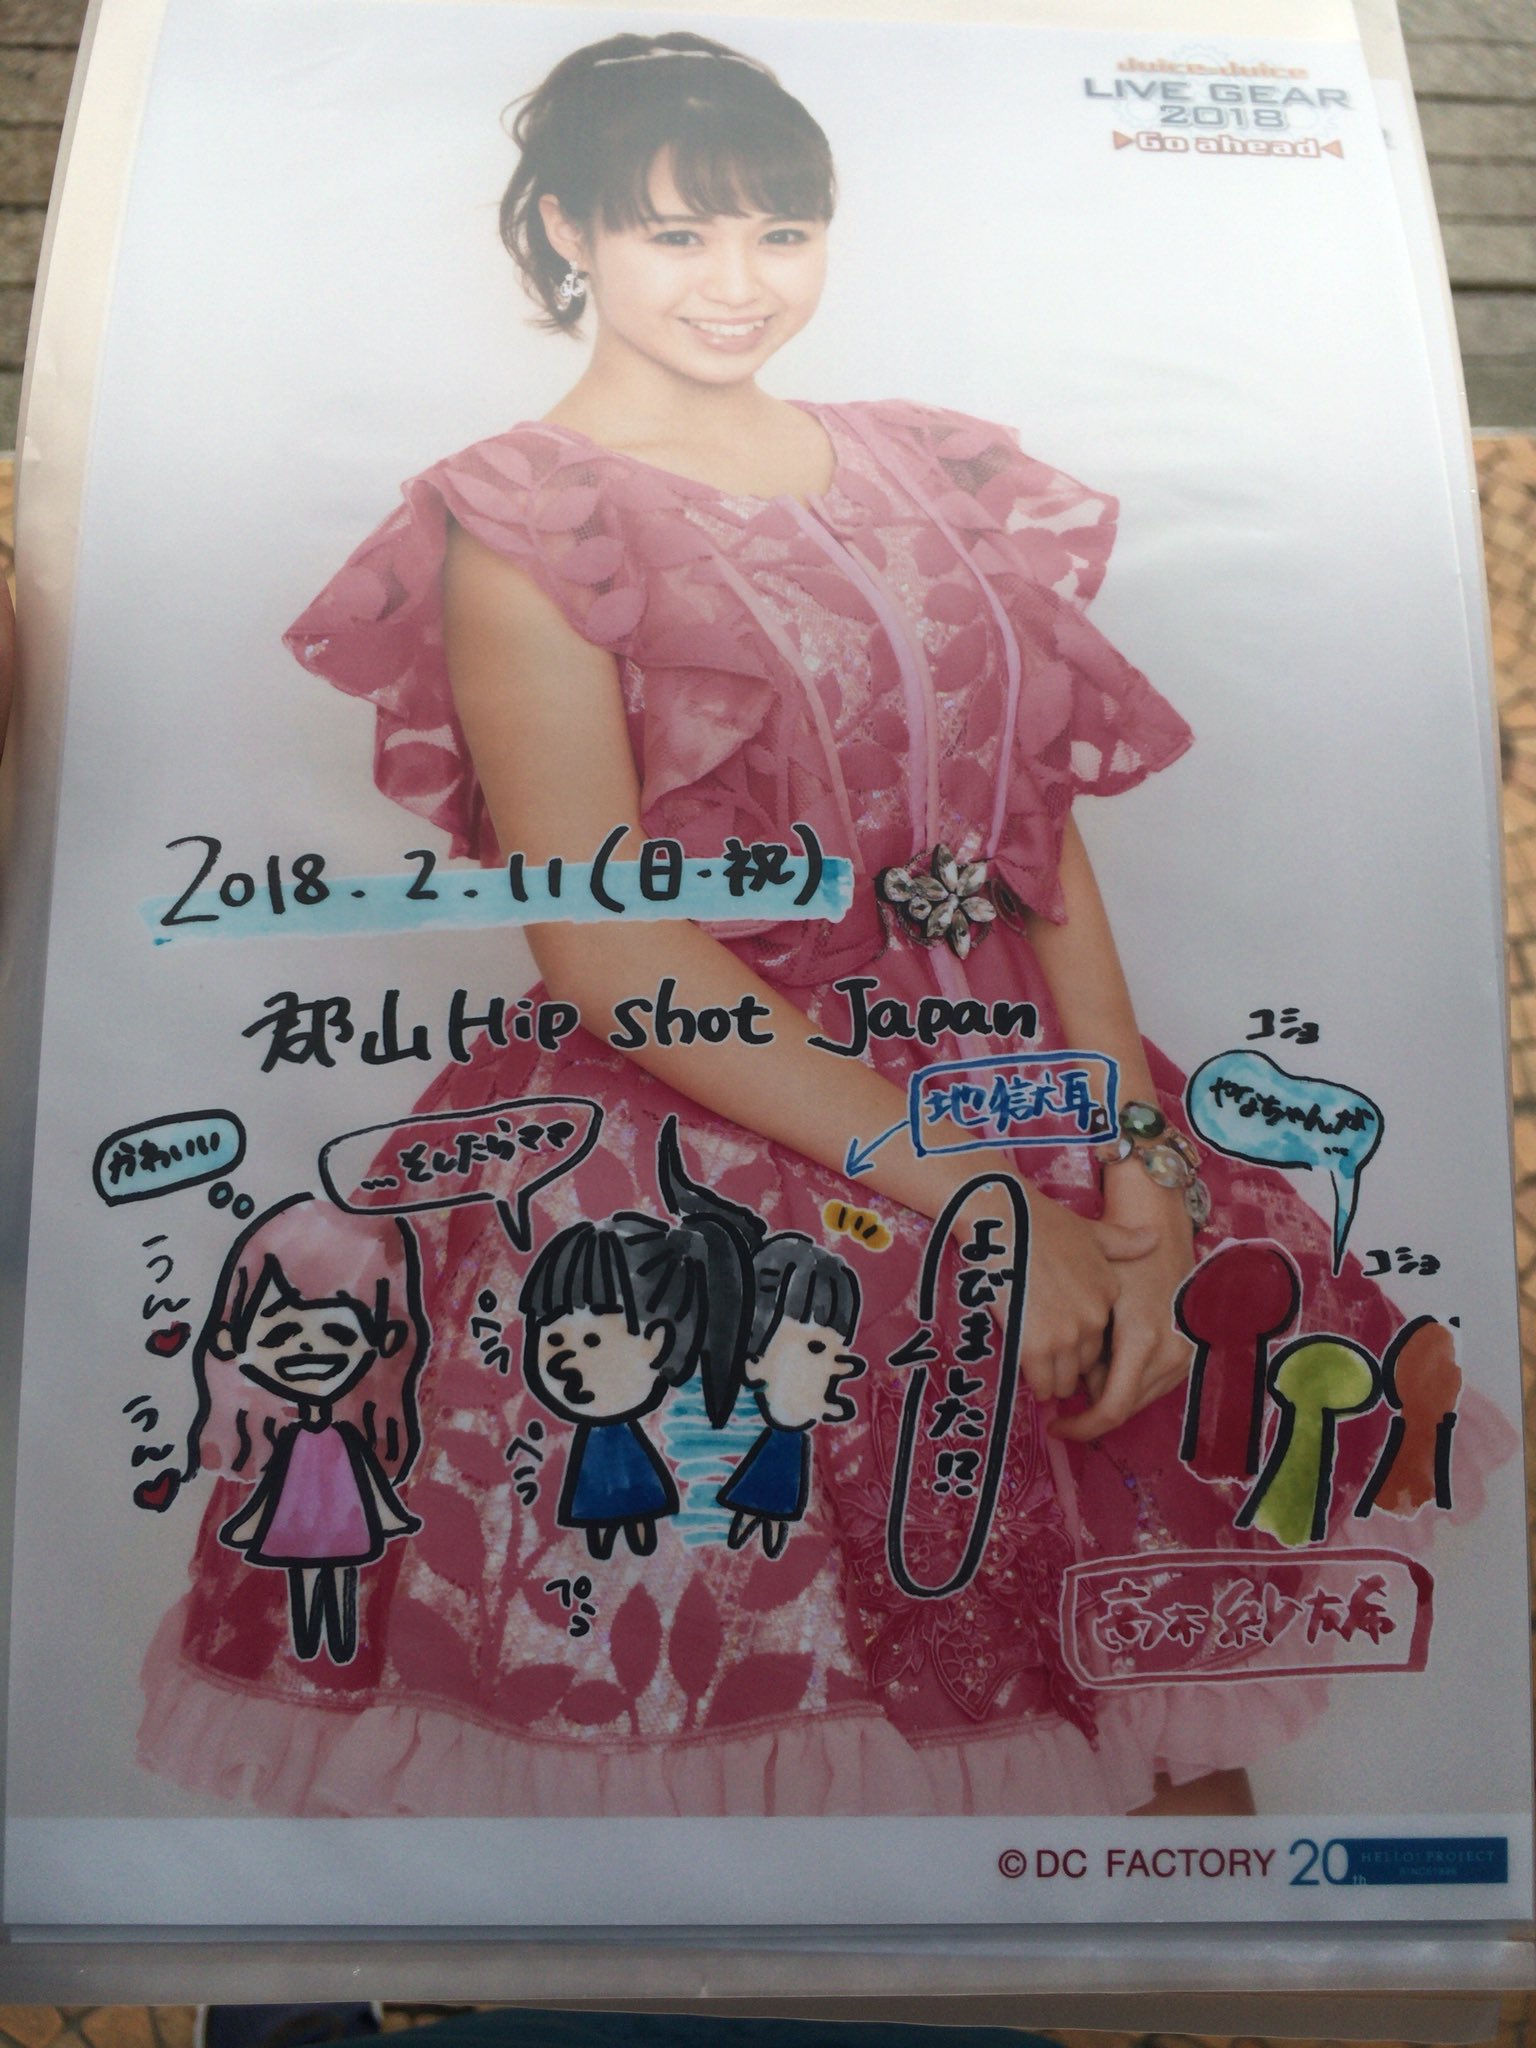 Juice=Juice
LIVE GEAR
2018
Go ahead
2018.2.11(日・祝)
郡山 Hip shot Japan
コショ
地獄耳
やなちゃんが…
かわいい
…そしたらママ
うん
よびました!?
コショ
ペラ
うん
ペラ
ペラ
高木紗友希
©DC FACTORY
20th
HELLO! PROJECT
SINCE1998